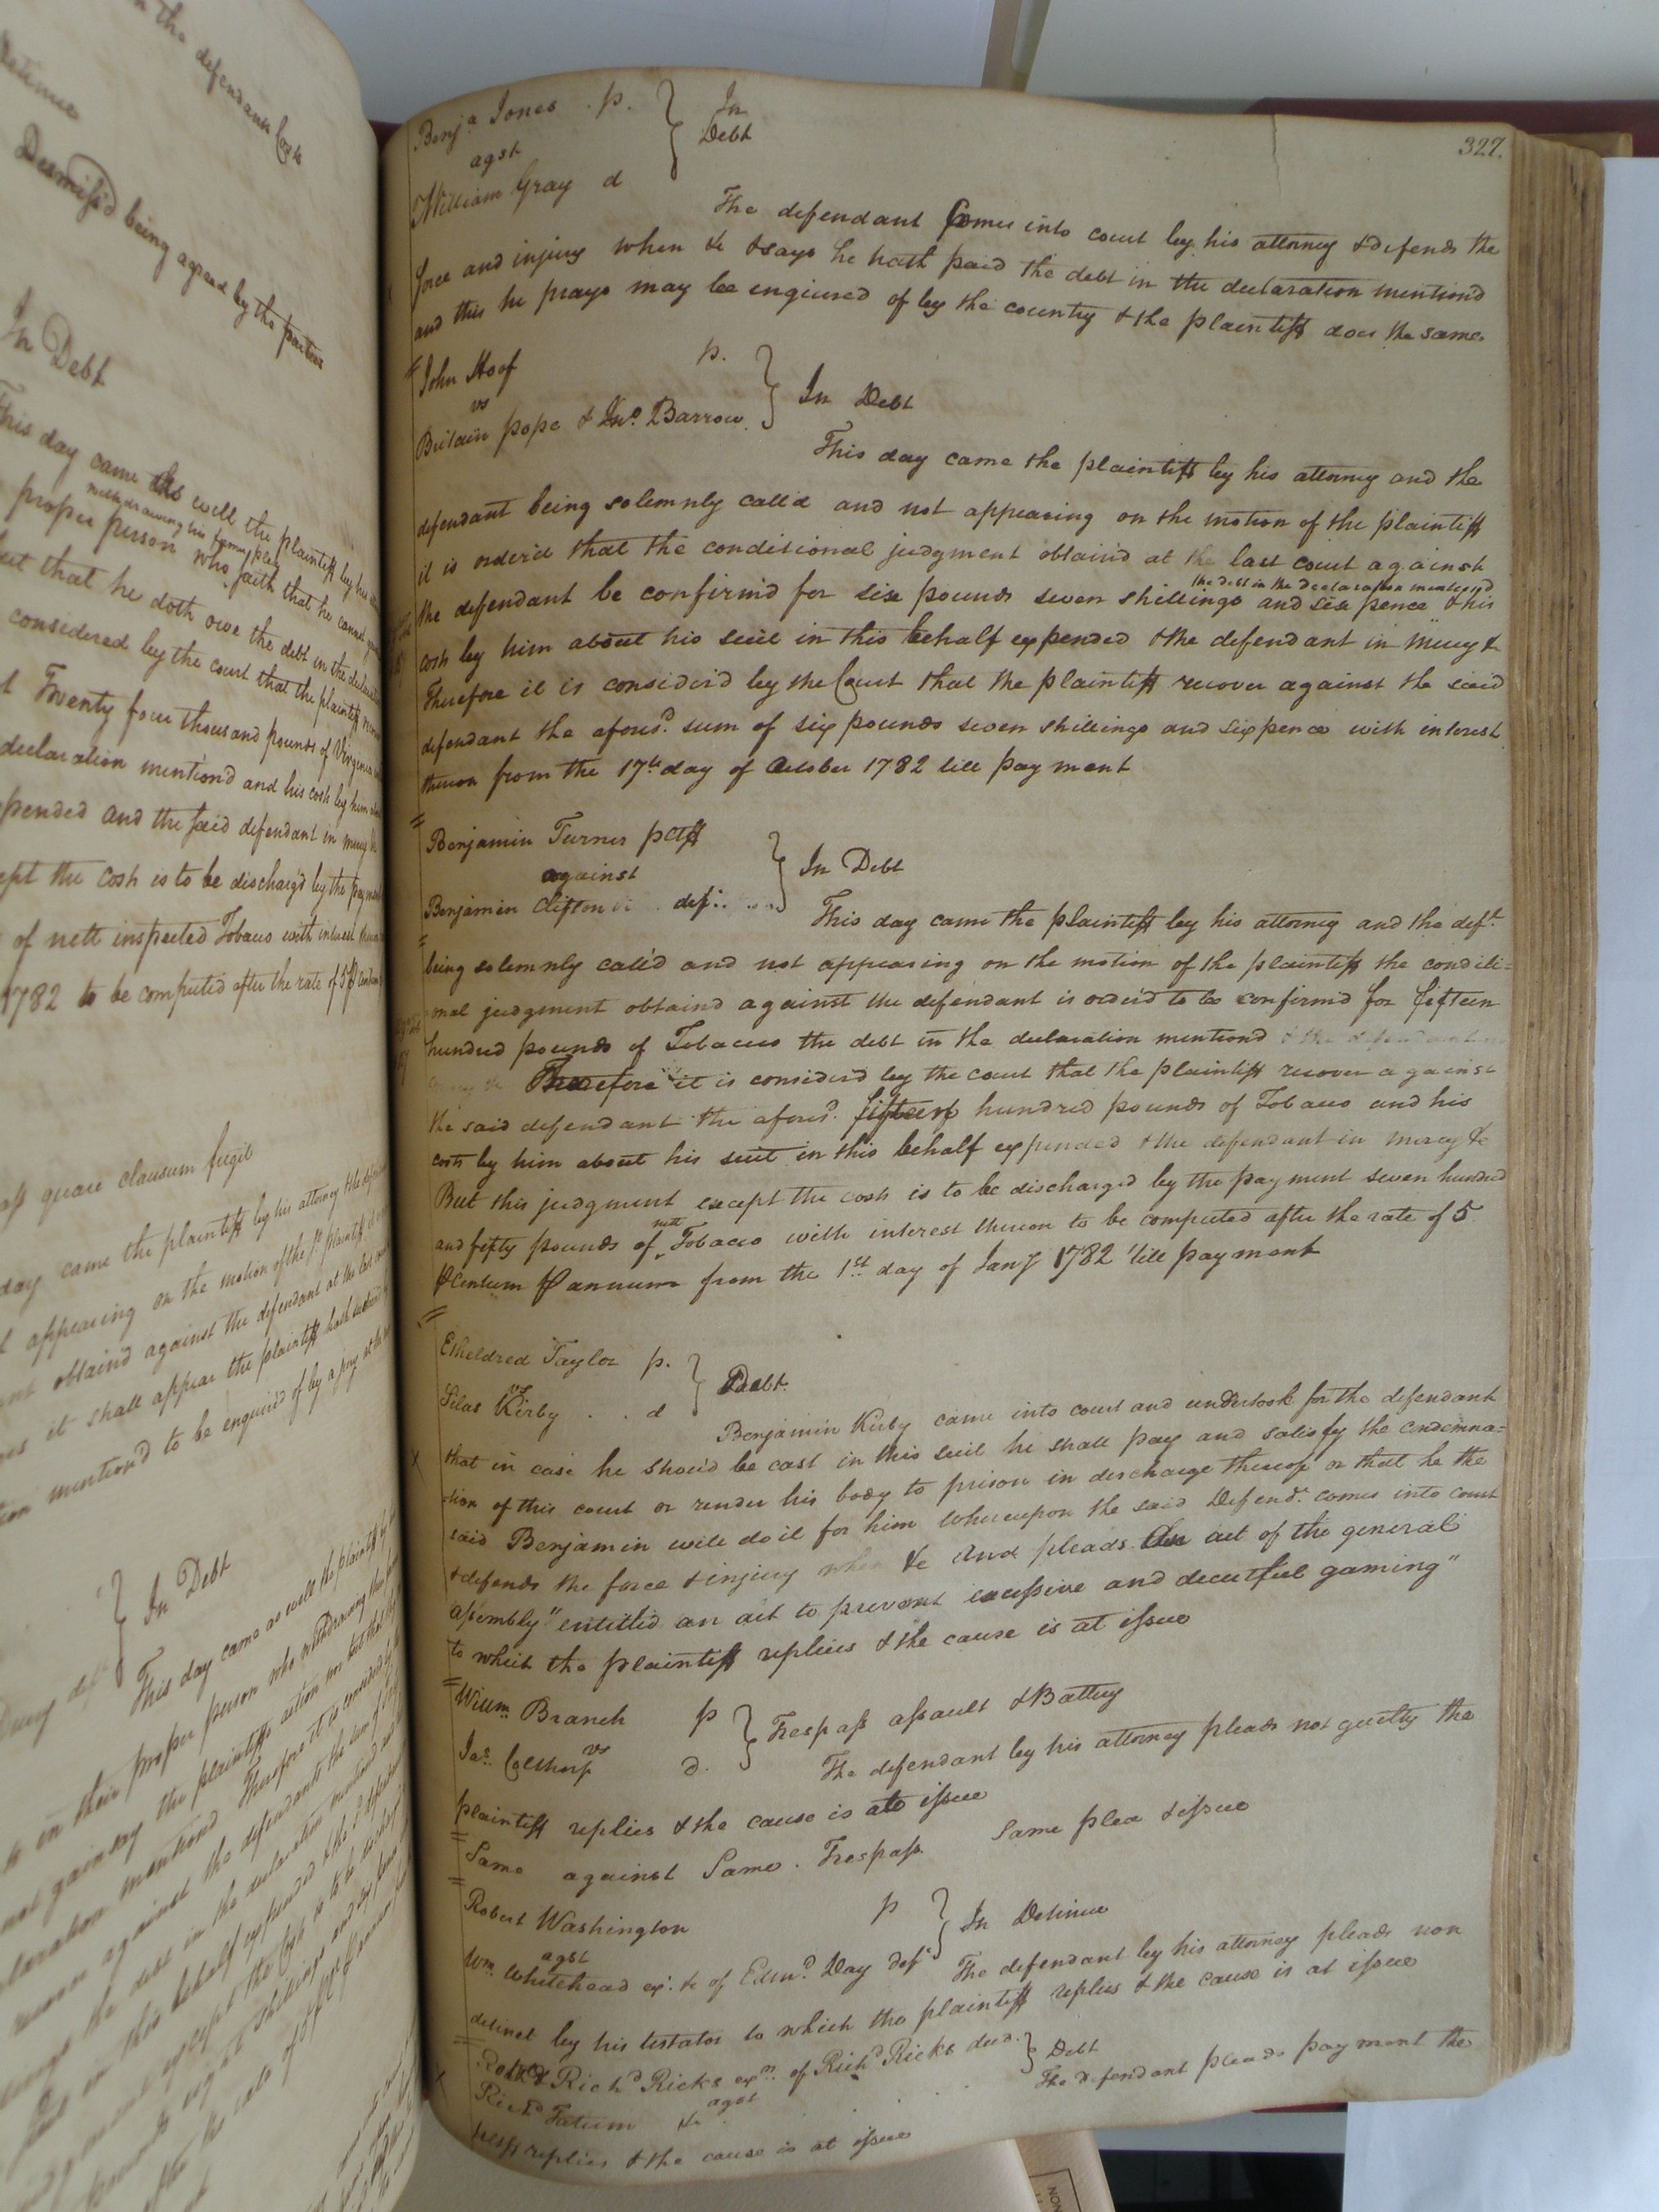 the defendants Costs
Detinue
Dismiss'd being agreed by the parties
In Debt
This day came as well the plaintiff by his
withdrawing his former plea
proper person who saith that he cannot
but that he doth owe the debt in the declaration
considered by the court that the plaintiff recover
Twenty four thousand pounds of Virginia
declaration mention'd and his costs by him
expended and the said defendant in mercy &c
except the costs is to be discharg'd by the payment
of nett inspected Tobacco with interest
1782 to be computed after the rate of 5 P Centum
quare clausum fregit
day came the plaintiff by his attorney & the
appearing on the motion of the plaintiff
obtaind against the defendant at the last
it shall appear the plaintiff hath sustaind
mention'd to be enquired of by a jury
In Debt
This day came as well the plaintiff
in their proper person who withdrawing
not gainsay the plaintiffs action
declaration mentiond Therefore it is considered
recover against the defendants the sum of
the debt in the declaration mentiond
in this behalf expended
except the costs is to be
eight shillings and six pence
327.
Benja Jones . p. } In
agst Debt
William Gray d
The defendant Comes into court by his attorney & defends the
force and injury when &c & says he hath paid the debt in the declaration mentiond
and this he prays may be enquired of by the country & the plaintiff does the same
John Hoof p. } In Debt
vs
Britain pope & Jno. Barrow
This day came the plaintiff by his attorney and the
defendant being solemnly call'd and not appearing on the motion of the plaintiff
it is order'd that the conditional judgment obtain'd at the last court against
the debt in the declaration mentiond
the defendant be confirm'd for six pounds seven shillings and six pence & his
costs by him about his suit in this behalf expended & the defendant in mercy &
Therefore it is consider'd by the Court that the plaintiff recover against the said
defendant the aforesd. sum of six pounds seven shillings and sixpence with interest
thereon from the 17th day of October 1782 till payment
Benjamin Turner ptff } In Debt
against
Benjamin Clifton def.
This day came the plaintiff by his attorney and the deft.
being solemnly call'd and not appearing on the motion of the plaintiff the conditi=
onal judgment obtaind against the defendant is order'd to be confirm'd for fifteen
hundred pounds of Tobacco the debt in the declaration mentiond & the defendant in
mercy &c Therefore it is consider'd by the court that the plaintiff recover against
the said defendant the aforesd. fifteen hundred pounds of Tobacco and his
costs by him about his suit in this behalf expended & the defendant in mercy &c
But this judgment except the costs is to be discharged by the payment seven hundred
nett
and fifty pounds of Tobacco with interest thereon to be computed after the rate of 5
P Centum P annum from the 1st day of Jany 1782 'till payment
Etheldred Taylor p. } Debt.
vs
Silas Kirby . . d
Benjamin Kirby came into court and undertook for the defendant
that in case he should be cast in this suit he shall pay and satisfy the condemna=
tion of this court or render his body to prison in discharge thereof or that he the
said Benjamin will do it for him whereupon the said Defendt. comes into court
& defends the force & injury when &c And pleads An act of the general
assembly "entitled an act to prevent excessive and deceitful gaming"
to which the plaintiff replies & the cause is at issue
Willm. Branch p } Trespass assault & Battery
vs
Jas. Calthorp d.
The defendant by his attorney pleads not guilty the
plaintiff replies & the cause is at issue
Same against Same . Trespass. Same plea & issue
Robert Washington p } In Detinue
agst
Wm. Whitehead exr. &c of Edmd. Day deft
The defendant by his attorney pleads non
detinet by his testator to which the plaintiff replies & the cause is at issue
Robt. & Richd Ricks exrs. of Richd Ricks decd. } Debt
agst
Richd Tatum &c The defendant pleads payment the
replies & the cause is at issue